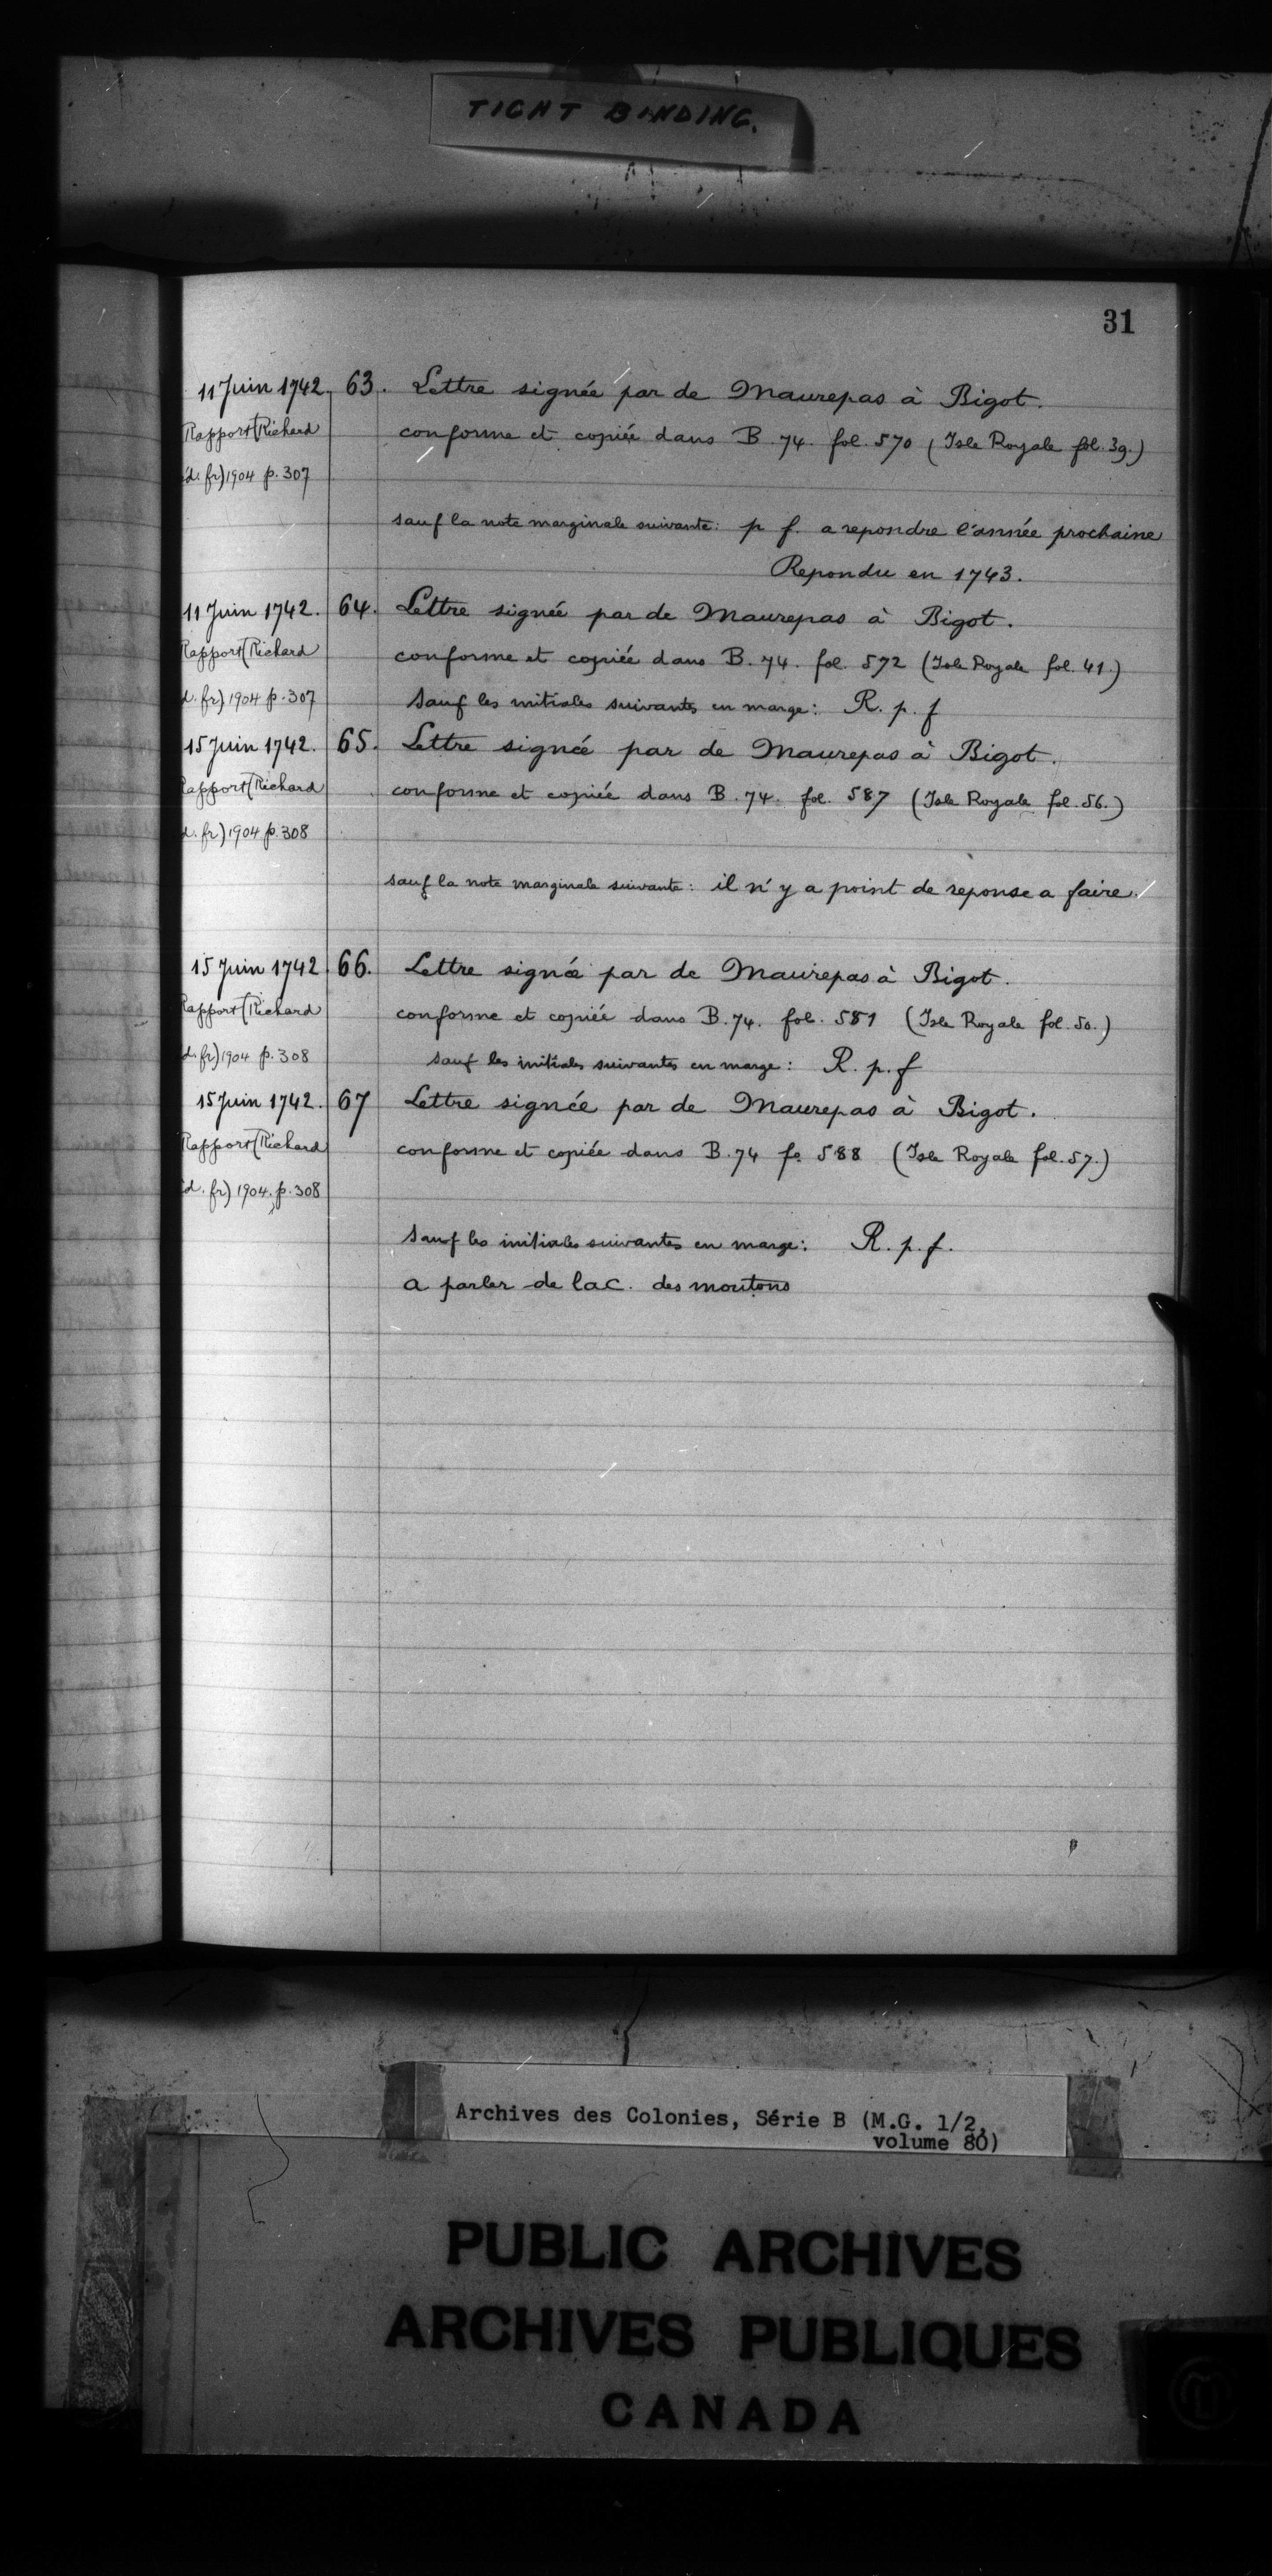 TIGHT BINDING.
31
11 Juin 1742. 63. Lettre signée par de Maurepas à Bigot.
Rapport (Richard conforme et copiée dans B. 74. fol. 570 (Isle Royale fol. 39.)
d. fr) 1904 p. 307
sauf la note marginale suivante: p f. a repondre l'année prochaine
Repondu en 1743.
11 Juin 1742. 64. Lettre signée par de Maurepas à Bigot.
Rapport (Richard conforme et copiée dans B. 74. fol. 572 (Isle Royale fol. 41.)
d. fr) 1904 p. 307 sauf les initiales suivantes en marge: R. p. f
15 Juin 1742. 65. Lettre signée par de Maurepas à Bigot.
Rapport (Richard conforme et copiée dans B. 74. fol. 587 (Isle Royale fol. 56.)
d. fr) 1904 p. 308
sauf la note marginale suivante: il n'y a point de reponse a faire.
15 Juin 1742 66. Lettre signée par de Maurepas à Bigot.
Rapport (Richard conforme et copiée dans B. 74. fol. 581 (Isle Royale fol. 50.)
d. fr) 1904 p. 308 sauf les initiales suivantes en marge: R. p. f
15 Juin 1742. 67 Lettre signée par de Maurepas à Bigot.
Rapport (Richard conforme et copiée dans B. 74 fo 588 (Isle Royale fol. 57.)
d. fr) 1904. p. 308
sauf les initiales suivantes en marge: R. p. f.
a parler de lac. des moutons
Archives des Colonies, Série B (M.G. 1/2,
volume 80)
PUBLIC ARCHIVES
ARCHIVES PUBLIQUES
CANADA